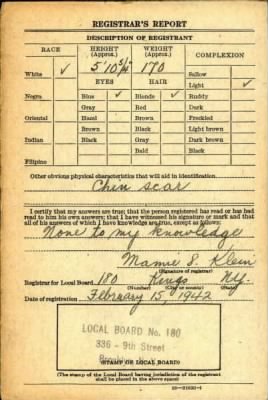 REGISTRAR'S REPORT
DESCRIPTION OF REGISTRANT
RACE HEIGHT (Approx.) WEIGHT (Approx.) COMPLEXION
White ✓ 5' 10 170 Sallow
EYES HAIR Light ✓
Negro Blue ✓ Blonde ✓ Ruddy
Gray Red Dark
Oriental Hazel Brown Freckled
Brown Black Light brown
Indian Black Gray Dark brown
Bald Black
Filipino
Other obvious physical characteristics that will aid in identification
Chin scar
I certify that my answers are true; that the person registered has read or has had
read to him his own answers; that I have witnessed his signature or mark and that
all of his answers of which I have knowledge are true, except as follows:
None to my knowledge
Mamie S. Klein
(Signature of registrar)
Registrar for Local Board 180 Kings N.Y.
(Number) (City or county) (State)
Date of registration February 15, 1942
LOCAL BOARD No. 180
336 - 9th Street
(STAMP OF LOCAL BOARD)
(The stamp of the Local Board having jurisdiction of the registrant
shall be placed in the above space)